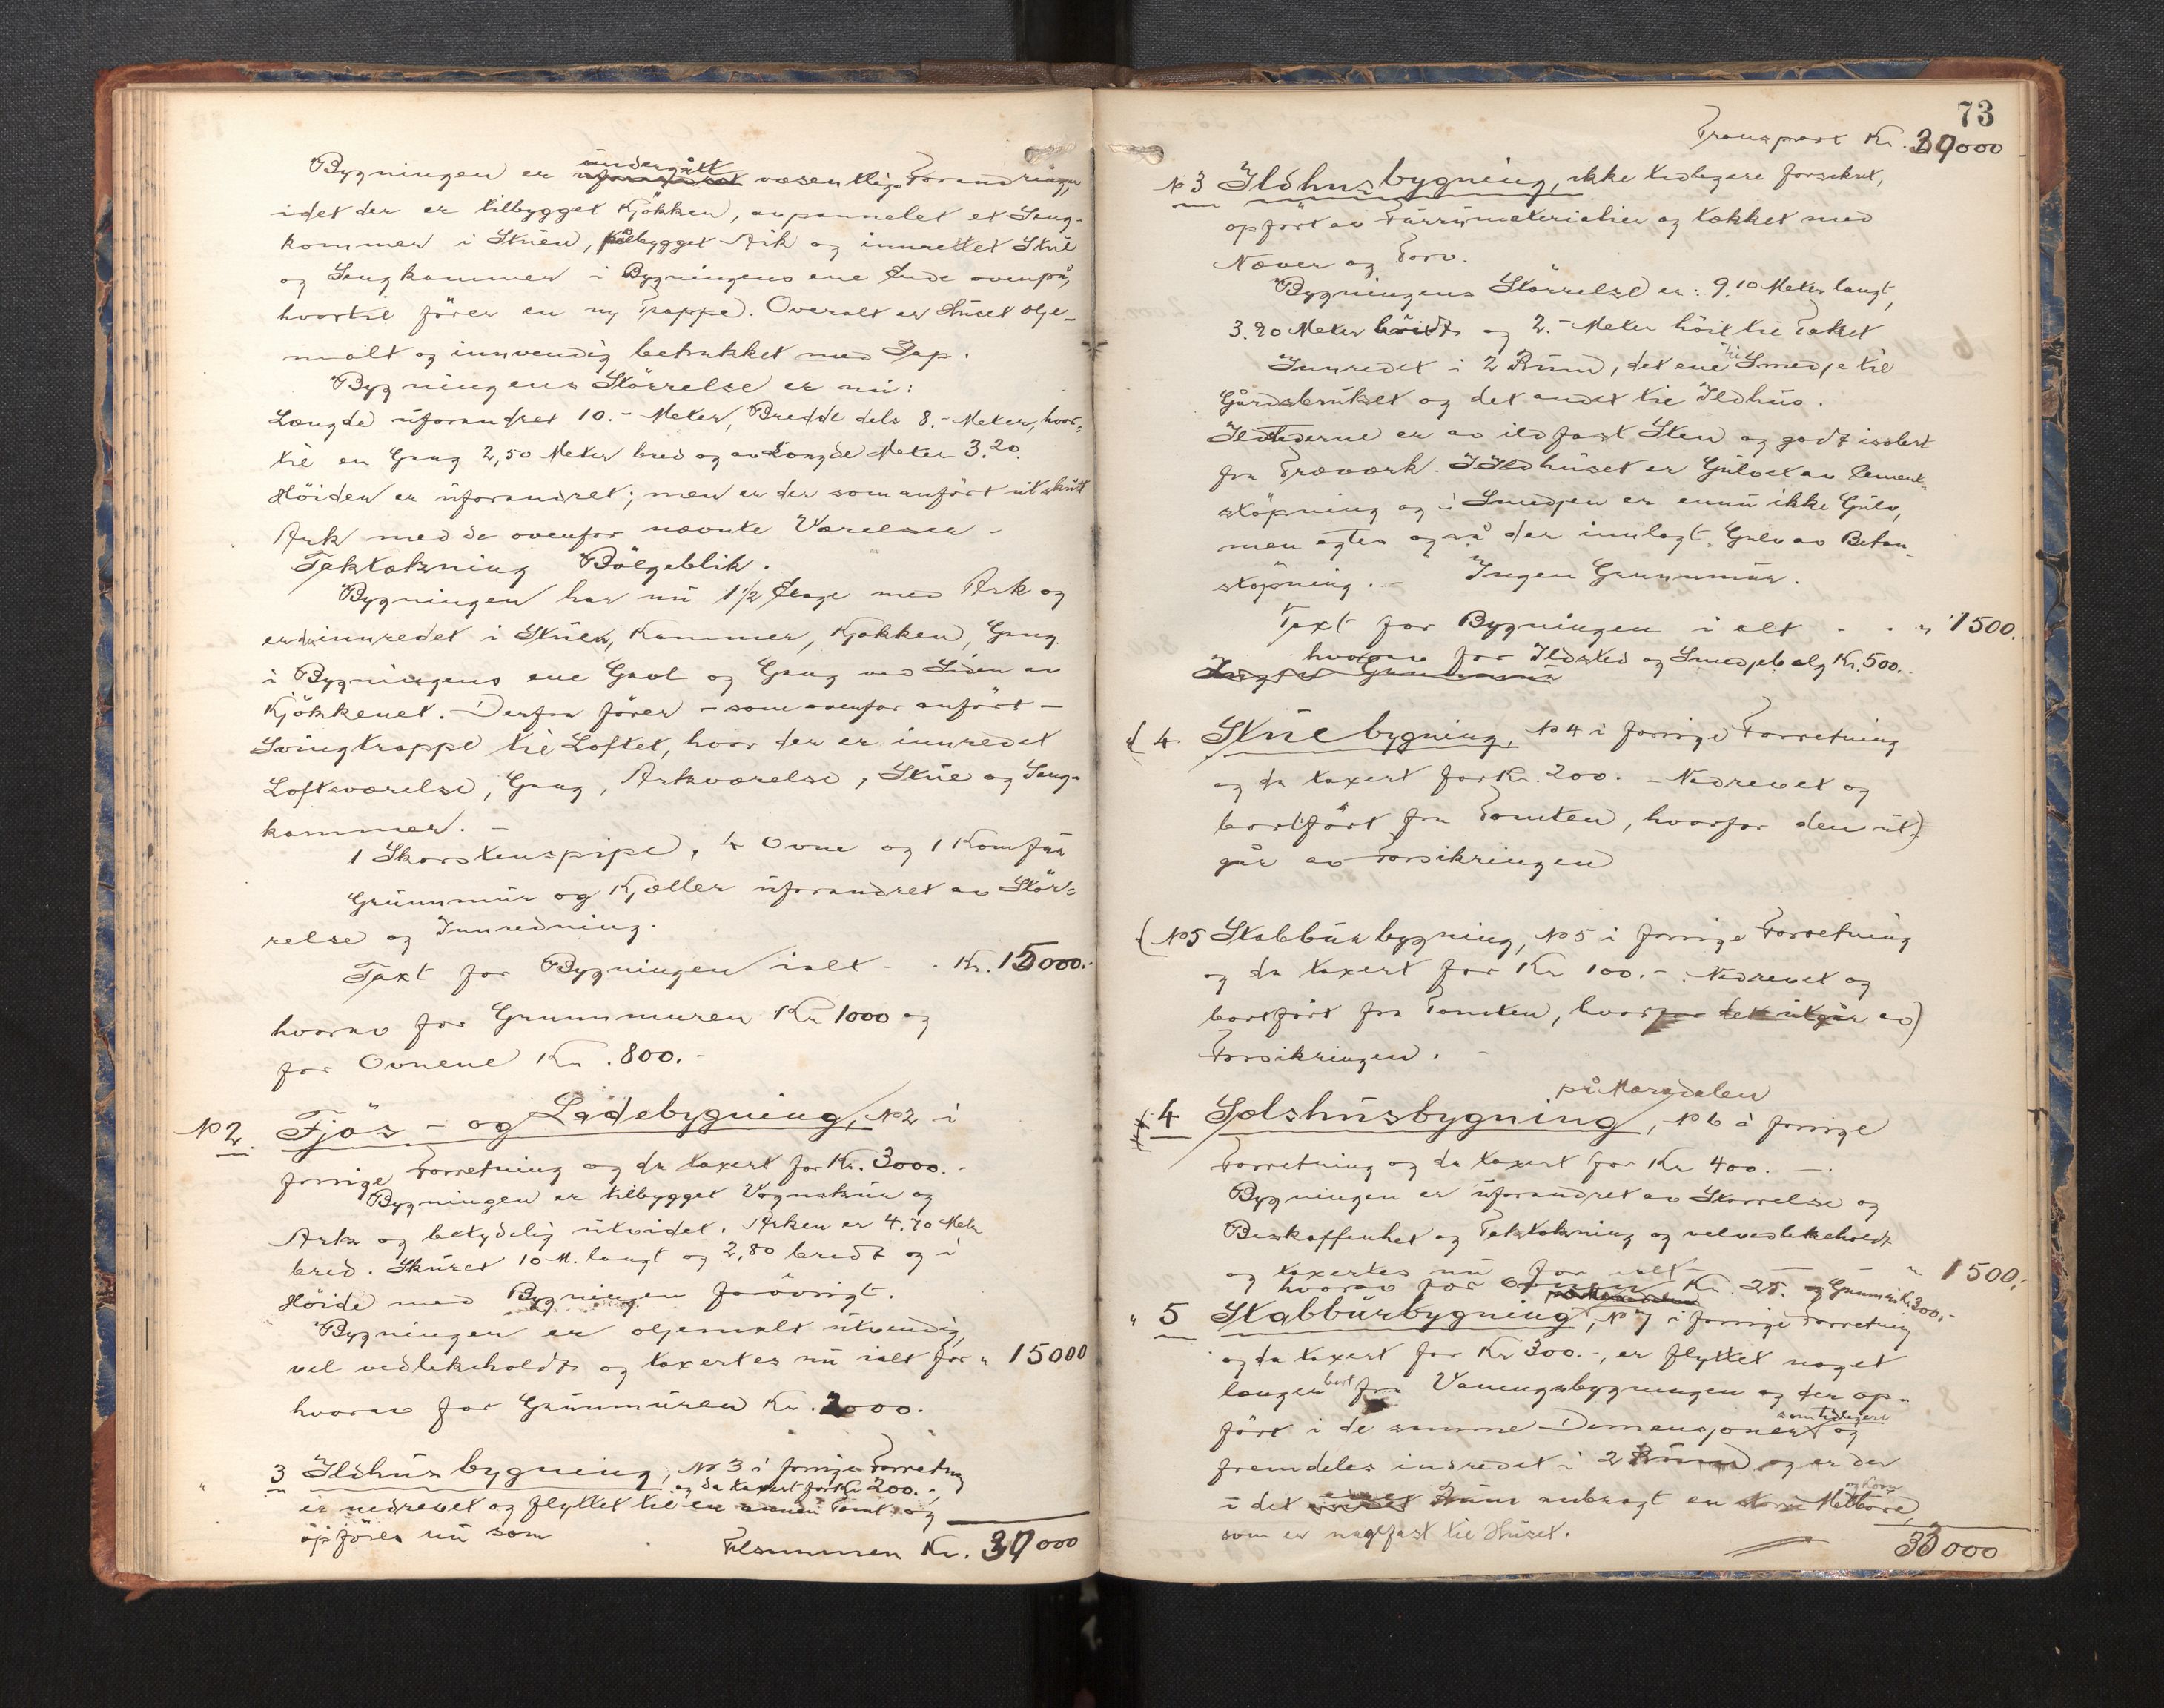 Bygningen er undergått væsentlige Forandringer,
idet der er tilbygget Kjøkken, avpannelet et Seng-
kammer i Stuen, påbygget Ark og innrettet Stue
og Sengkammer i Bygningens ene Ende ovenpå,
hvortil fører en ny Trappe. Overalt er Huset olje-
malt og innvendig betrukket med Tap.
Bygningens Størrelse er nu:
Længde uforandret 10.- Meter, Bredde dels 8.- Meter, hvor-
til en Gang 2,50 Meter bred og av Længde Meter 3.20.
Høiden er uforandret; men er der som anført utskutt
Ark med de ovenfor nævnte Værelser -
Taktækning Bølgeblik.
Bygningen har nu 1½ Etage med Ark og
er da innredet i Stue, Kammer, Kjøkken, Gang
i Bygningens ene Gavl og Gang ved Siden av
Kjøkkenet. Derfra fører - som ovenfor anført -
Svingtrappe til Loftet, hvor der er innredet
Loftsværelse, Gang, Arkværelse, Stue og Seng-
kammer. -
1 Skorstenspipe, 4 Ovne og 1 Komfur
Grunnmur og Kjæller uforandret av Stør-
relse og Innredning.
Taxt for Bygningen ialt - - Kr. 15000.-
hvorav for Grunnmuren Kr 1000 og
for Ovnene Kr. 800.-
No 2. Fjös - og Ladebygning, No 2 i
forrige Forretning og da taxert for Kr. 3000.-
Bygningen er tilbygget Vognskur og
Ark og betydelig utvidet. Arken er 4.70 Meter
bred. Skuret 10 M. langt og 2,80 bredt og i
Høide med Bygningen forövrigt.
Bygningen er oljemalt utvendig,
vel vedlikeholdt og taxertes nu ialt for " 15000
hvorav for Grunnmuren Kr. 2000.
" 3 Ildhusbygning, No 3 i forrige Forretning
og da taxert for Kr 200.-,
er nedrevet og flyttet til en annen Tomt og
opføres nu som
Tilsammen Kr. 30000
73
Transport Kr. 30000
No 3 Ildhusbygning, ikke tidligere forsikret,
opført av Furumaterialier og tækket med
Næver og Torv.
Bygningens Størrelse er: 9.10 Meter langt,
3.90 Meter bredt og 2.- Meter höit til Taket
Innredet i 2 Rum, det ene til Smedje til
Gårdsbruket og det andet til Ildhus.
Ildstederne er av ildfast Sten og godt isolert
fra Træværk. I Ildhuset er Gulvet av Cement-
støpning og i Smedjen er ennu ikke Gulv,
men agtes også der innlagt Gulv av Beton-
støpning. - Ingen Grunnmur.
Taxt for Bygningen i alt - - " 1500.
hvorav for Ildsted og Smedjebelg Kr. 500.-
Ingen Grunnmur
( 4 Stuebygning, No 4 i forrige Forretning
og da taxert for Kr. 200. - Nedrevet og
bortført fra Tomten, hvorfor den ut-)
går av Forsikringen
( No 5 Stabbursbygning, No 5 i forrige Forretning
og da taxert for Kr 100.- . Nedrevet og
bortført fra Tomten, hvorfor det utgår av)
Forsikringen.
på Maradalen
4 Selshusbygning, No 6 i forrige
Forretning og da taxert for Kr 400. -
Bygningen er uforandret av Størrelse og
Beskaffenhet og Taktækning og vel vedlikeholdt
og taxertes nu for ialt - " 1500.-
hvorav for Ovnen Kr. 25. og Grunnmur Kr 300.-
" 5 Stabbursbygning, No 7 i forrige Forretning
og da taxert for Kr 300.-, er flyttet noget
længer bort fra Vaaningsbygningen og der op-
ført i de samme Dimensjoner som tidligere og
fremdeles inredet i 2 Rum og er der
i det Rum anbragt en Melbøre, og Korn
som er naglfast til Huset.
33000